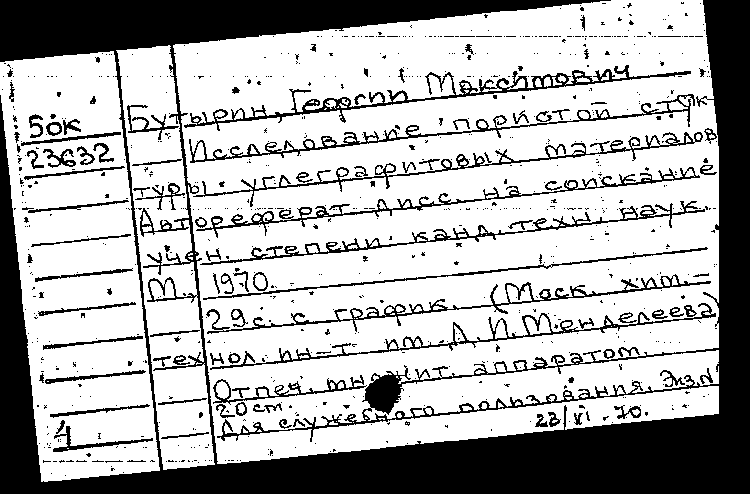 Бутырин, Георгий Максимович
50к
23632
Исследование пористой струк-
туры углеграфитовых материалов
Автореферат дисс. на соискание
учен. степени канд. техн. наук.
М., 1970.
29с. с график. (Моск. хим.-
технол. ин-т им. Д. И. Менделеева)
Отпеч. множит. аппаратом.
20 см.
Для служебного пользования. Экз. N
4
23/VI.70.